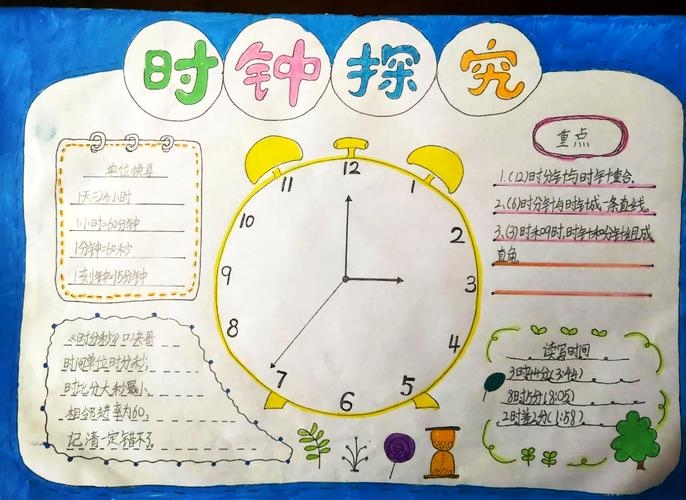 时钟探究
单位换算
1天=24小时
1小时=60分钟
1分钟=60秒
1刻钟=15分钟
《时分秒》口诀哥
时间单位时分秒,
时比分大秒最小,
相邻进率为60,
记清一定错不了。
12
1
2
3
4
5
6
7
8
9
10
11
重点
1.(12)时分针与时针重合.
2.(6)时分针与时针成一条直线.
3.(3)时和9时,时针和分针组成
直角.
读写时间
3时44分(3:44)
8时5分(8:05)
2时差2分(1:58)